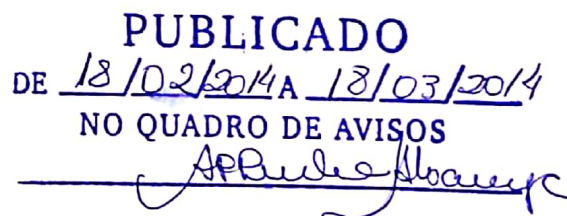 PUBLICADO
DE 18/02/2014 A 18/03/2014
NO QUADRO DE AVISOS